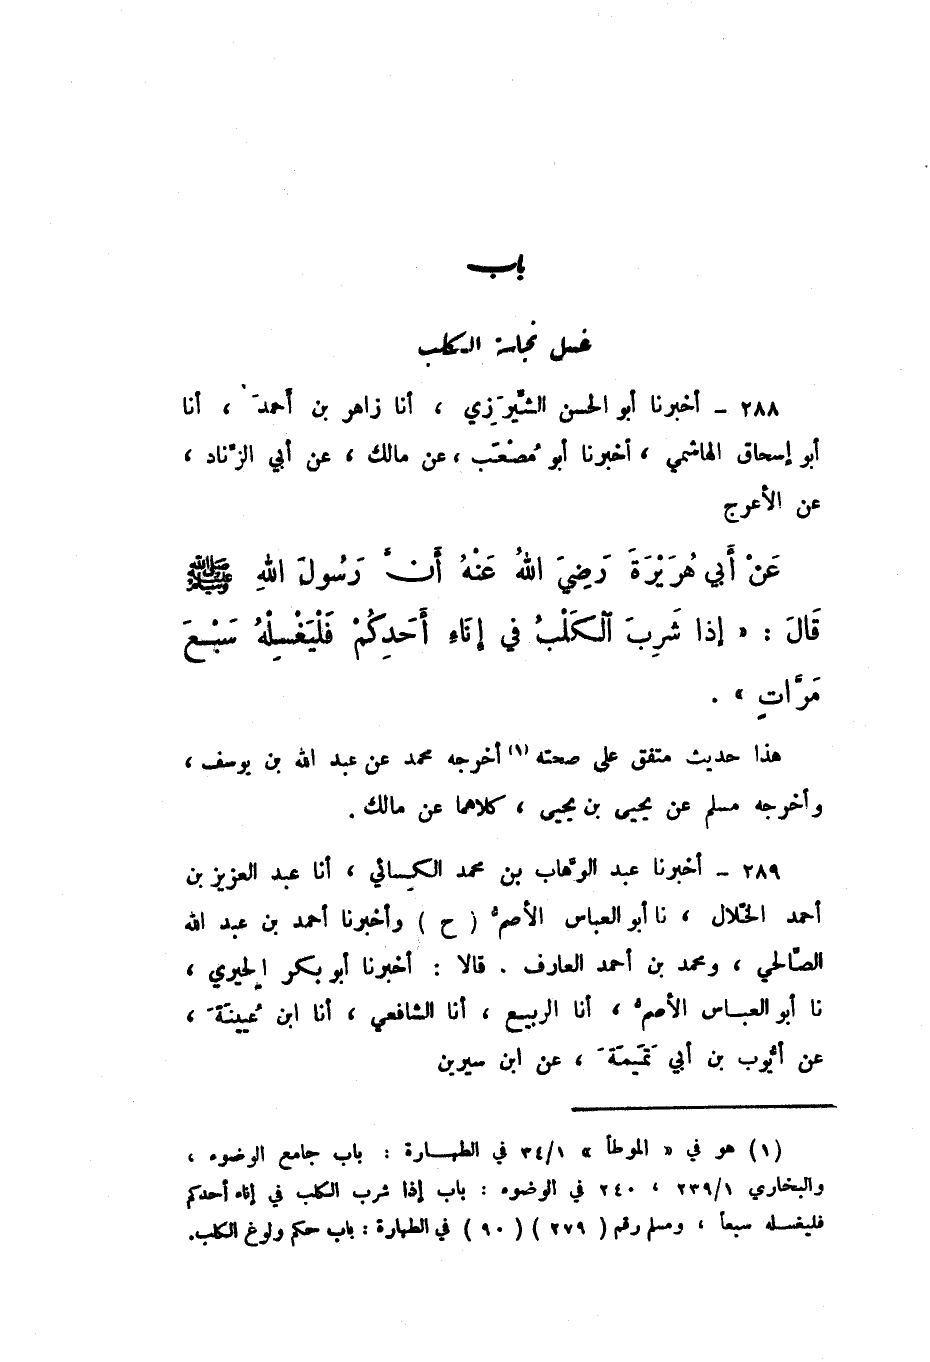 باب
غسل نجاسة الكلب
٢٨٨ – أخبرنا أبو الحسن الشَّيرَزي ، أنا زاهر بن أحمدَ ، أنا
أبو إسحاق الهاشمي ، أخبرنا أبو مُصْعَب ، عن مالك ، عن أبي الزِّناد ،
عن الأعرج
عَنْ أَبِي هُرَيْرَةَ رَضِيَ اللهُ عَنْهُ أَنَّ رَسُولَ اللهِ ﷺ
قَالَ : « إِذا شَرِبَ ٱلْكَلْبُ فِي إِنَاءِ أَحَدِكُمْ فَلْيَغْسِلْهُ سَبْعَ
مَرَّاتٍ » .
هذا حديث متفق على صحته (١) أخرجه محمد عن عبد الله بن يوسف ،
وأخرجه مسلم عن يحيى بن يحيى ، كلاهما عن مالك .
٢٨٩ – أخبرنا عبد الوهَّاب بن محمد الكِسائي ، أنا عبد العزيز بن
أحمد الخلّال ، نا أبو العباس الأصمُّ ( ح ) وأخبرنا أحمد بن عبد الله
الصَّالحي ، ومحمد بن أحمد العارف . قالا : أخبرنا أبو بكر الحِيري ،
نا أبو العباس الأصمُّ ، أنا الربيع ، أنا الشافعي ، أنا ابن عُيينَةَ ،
عن أيُّوب بن أبي تَمَيمَةَ ، عن ابن سيرين
(١) هو في « الموطأ » ٣٤/١ في الطهارة : باب جامع الوضوء ،
والبخاري ٢٣٩/١ ، ٢٤٠ في الوضوء : باب إذا شرب الكلب في إناء أحدكم
فليغسله سبعاً ، ومسلم رقم ( ٢٧٩ ) ( ٩٠ ) في الطهارة : باب حكم ولوغ الكلب.